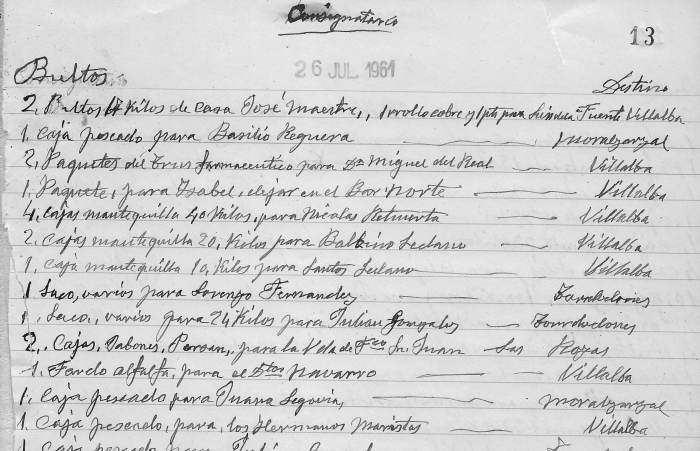 Consignatario
13
26 JUL. 1961
Bultos Destino
2, Bultos 4 Kilos de casa José Maestre,, 1 rollo cobre y 1 pts para Fuente Villalba
1, Caja pescado para Basilio Reguera Moralzarzal
2, Paquetes del farmaceutico para Dn Miguel del Real Villalba
1, Paquete, para Isabel, dejar en el Bar Norte Villalba
4, Cajas mantequilla 40 Kilos, para Nicolas Retuerta Villalba
2, Cajas mantequilla 20, Kilos para Balbino Seclano Villalba
1, Caja mantequilla 10, Kilos para Santos Villalba
1 Saco, varios para Lorenzo Fernandez Torrelodones
1, Saco,, varios para 24 Kilos para Julian Gonzalez Torrelodones
2,. Cajas, Jabones, Persan,, para la Vda de Fco Sn Juan Las Rozas
1, Fardo alfalfa, para el Navarro Villalba
1, Caja pescado para Juana Segovia, Moralzarzal
1, Caja pescado, para, los Hermanos Maristas Villalba
1 Caja pescado para